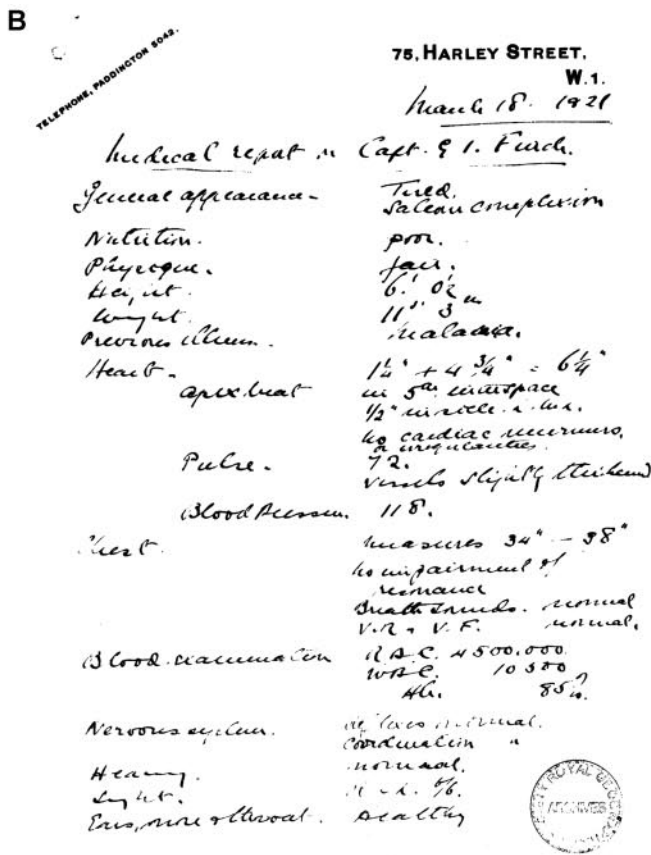 B
TELEPHONE, PADDINGTON 5042.
75, HARLEY STREET,
W.1.
March 18. 1921
Medical report on Capt. G I. Finch.
General appearance - Tired.
Sallow complexion
Nutrition. poor.
Physique. fair.
Height. 6' 0½
Weight. 11 st 3
Previous illness. Malaria.
Heart - 1¼" + 4¾" = 6¼"
apex beat in 5th interspace
½" inside
no cardiac murmurs,
or irregularities.
Pulse. 72.
vessels slightly thickened
Blood Pressure. 118.
Chest. measures 34" - 38"
No impairment of
resonance
Breath sounds. normal
V.R. & V.F. normal.
Blood examination R.B.C. 4 500.000
WBC. 10 500
Hb. 85%
Nervous system. reflexes normal.
Coordination "
Hearing. normal.
Sight. 6/6.
Ears, nose & throat. healthy
ROYAL
ARCHIVES